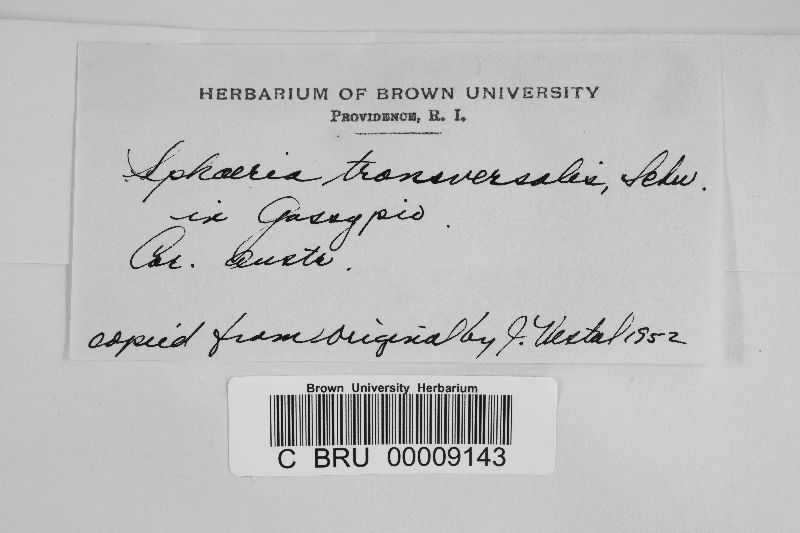 HERBARIUM OF BROWN UNIVERSITY
PROVIDENCE, R. I.
Sphaeria transversalis, Schw.
in Gossypio.
Car. Austr.
copied from original by J. Vestal 1952
Brown University Herbarium
C BRU 00009143